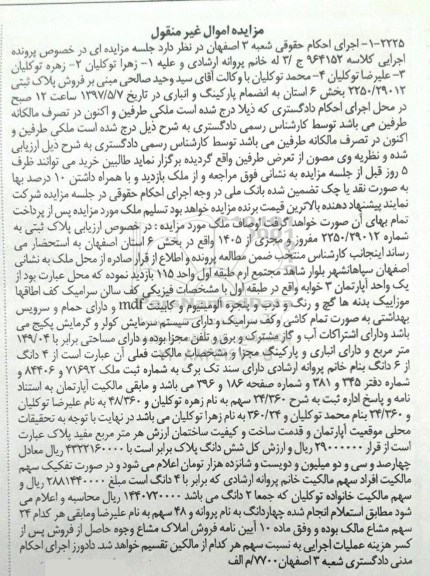 مزایده اموال غیر منقول
۱-۲۲۲۵- اجرای احکام حقوقی شعبه ۳ اصفهان در نظر دارد جلسه مزایده ای در خصوص پرونده
اجرایی کلاسه ۹۶۴۱۵۲ ج /۳ له خانم پروانه ارشادی و علیه ۱- زهرا توکلیان ۲- زهره توکلیان
۳- علیرضا توکلیان ۴- محمد توکلیان با وکالت آقای سید وحید صالحی مبنی بر فروش پلاک ثبتی
۲۲۵۰/۲۹۰۱۲ بخش ۶ استان به انضمام پارکینگ و انباری در تاریخ ۱۳۹۷/۵/۷ ساعت ۱۲ صبح
در محل اجرای احکام دادگستری که ذیلا درج شده است ملکی طرفین و اکنون در تصرف مالکانه
طرفین می باشد توسط کارشناس رسمی دادگستری به شرح ذیل درج شده است ملکی طرفین و
اکنون در تصرف مالکانه طرفین می باشد توسط کارشناس رسمی دادگستری به شرح ذیل ارزیابی
شده و نظریه وی مصون از تعرض طرفین واقع گردیده برگزار نماید طالبین خرید می توانند ظرف
۵ روز قبل از جلسه مزایده به نشانی فوق مراجعه و از ملک بازدید و با همراه داشتن ۱۰ درصد بها
به صورت نقد یا چک تضمین شده بانک ملی در وجه اجرای احکام حقوقی در جلسه مزایده شرکت
نمایند پیشنهاد دهنده بالاترین قیمت برنده مزایده خواهد بود تسلیم ملک مورد مزایده پس از پرداخت
تمام بهای آن صورت خواهد گرفت اوصاف ملک مورد مزایده : در خصوص ارزیابی پلاک ثبتی به
شماره ۲۲۵۰/۲۹۰۱۲ مفروز و مجزی از ۱۴۰۵ واقع در بخش ۶ استان اصفهان به استحضار می
رساند اینجانب کارشناس منتخب ضمن مطالعه پرونده و اطلاع از قرار صادره از محل ملک به نشانی
اصفهان سپاهانشهر بلوار شاهد مجتمع ارم طبقه اول واحد ۱۱۵ بازدید نموده که محل عبارت بود از
یک واحد آپارتمان ۳ خوابه واقع در طبقه اول با مشخصات فیزیکی کف سالن سرامیک کف اطاقها
موزاییک بدنه ها گچ و رنگ و درب و پنجره آلومینیوم و کابینت mdf و دارای حمام و سرویس
بهداشتی به صورت تمام کاشی وکف سرامیک و دارای سیستم سرمایش کولر و گرمایش پکیج می
باشد ودارای اشتراکات آب و گاز مشترک و برق و تلفن مجزا بوده و دارای مساحتی برابر با ۱۴۹/۰۴
متر مربع و دارای انباری و پارکینگ مجزا و مشخصات مالکیت فعلی آن عبارت است از ۴ دانگ
از ۶ دانگ بنام خانم پروانه ارشادی دارای سند تک برگ به شماره ثبت ملک ۷۱۶۹۲ و ۸۴۴۰۶ و
شماره دفتر ۳۴۵ و ۳۸۱ و شماره صفحه ۱۸۶ و ۳۹۶ می باشد و مابقی مالکیت آپارتمان به استناد
نامه و پاسخ اداره ثبت به شرح ۲۴/۳۶۰ سهم به نام زهره توکلیان و ۴۸/۳۶۰ به نام علیرضا توکلیان
و ۲۴/۳۶۰ بنام محمد توکلیان و ۳۶۰/۲۴ به نام زهرا توکلیان می باشد در نهایت با توجه به تحقیقات
محلی موقعیت آپارتمان و قدمت ساخت و کیفیت ساختمان ارزش هر متر مربع مفید پلاک عبارت
است از قرار ۲۹۰۰۰۰۰۰ ریال و ارزش کل شش دانگ پلاک برابر است با ۴۳۲۲۱۶۰۰۰۰ ریال معادل
چهارصد و سی و دو میلیون و دویست و شانزده هزار تومان اعلام می شود و در صورت تفکیک سهم
مالکیت افراد سهم مالکیت خانم پروانه ارشادی که برابر با ۴ دانگ است مبلغ ۲۸۸۱۴۴۰۰۰۰ ریال و
سهم مالکیت خانواده توکلیان که جمعا ۲ دانگ می باشد ۱۴۴۰۷۲۰۰۰۰ ریال محاسبه و اعلام می
شود مطابق استعلام انجام شده چهاردانگ به نام پروانه و ۴۸ سهم به نام علیرضا ومابقی هر کدام ۲۴
سهم مشاع مالک بوده و وفق ماده ۱۰ آیین نامه فروش املاک مشاع وجوه حاصل از فروش پس از
کسر هزینه عملیات اجرایی به نسبت سهم هر کدام از مالکین تقسیم خواهد شد. دادورز اجرای احکام
مدنی دادگستری شعبه ۳ اصفهان ۷۷۰۰/م الف